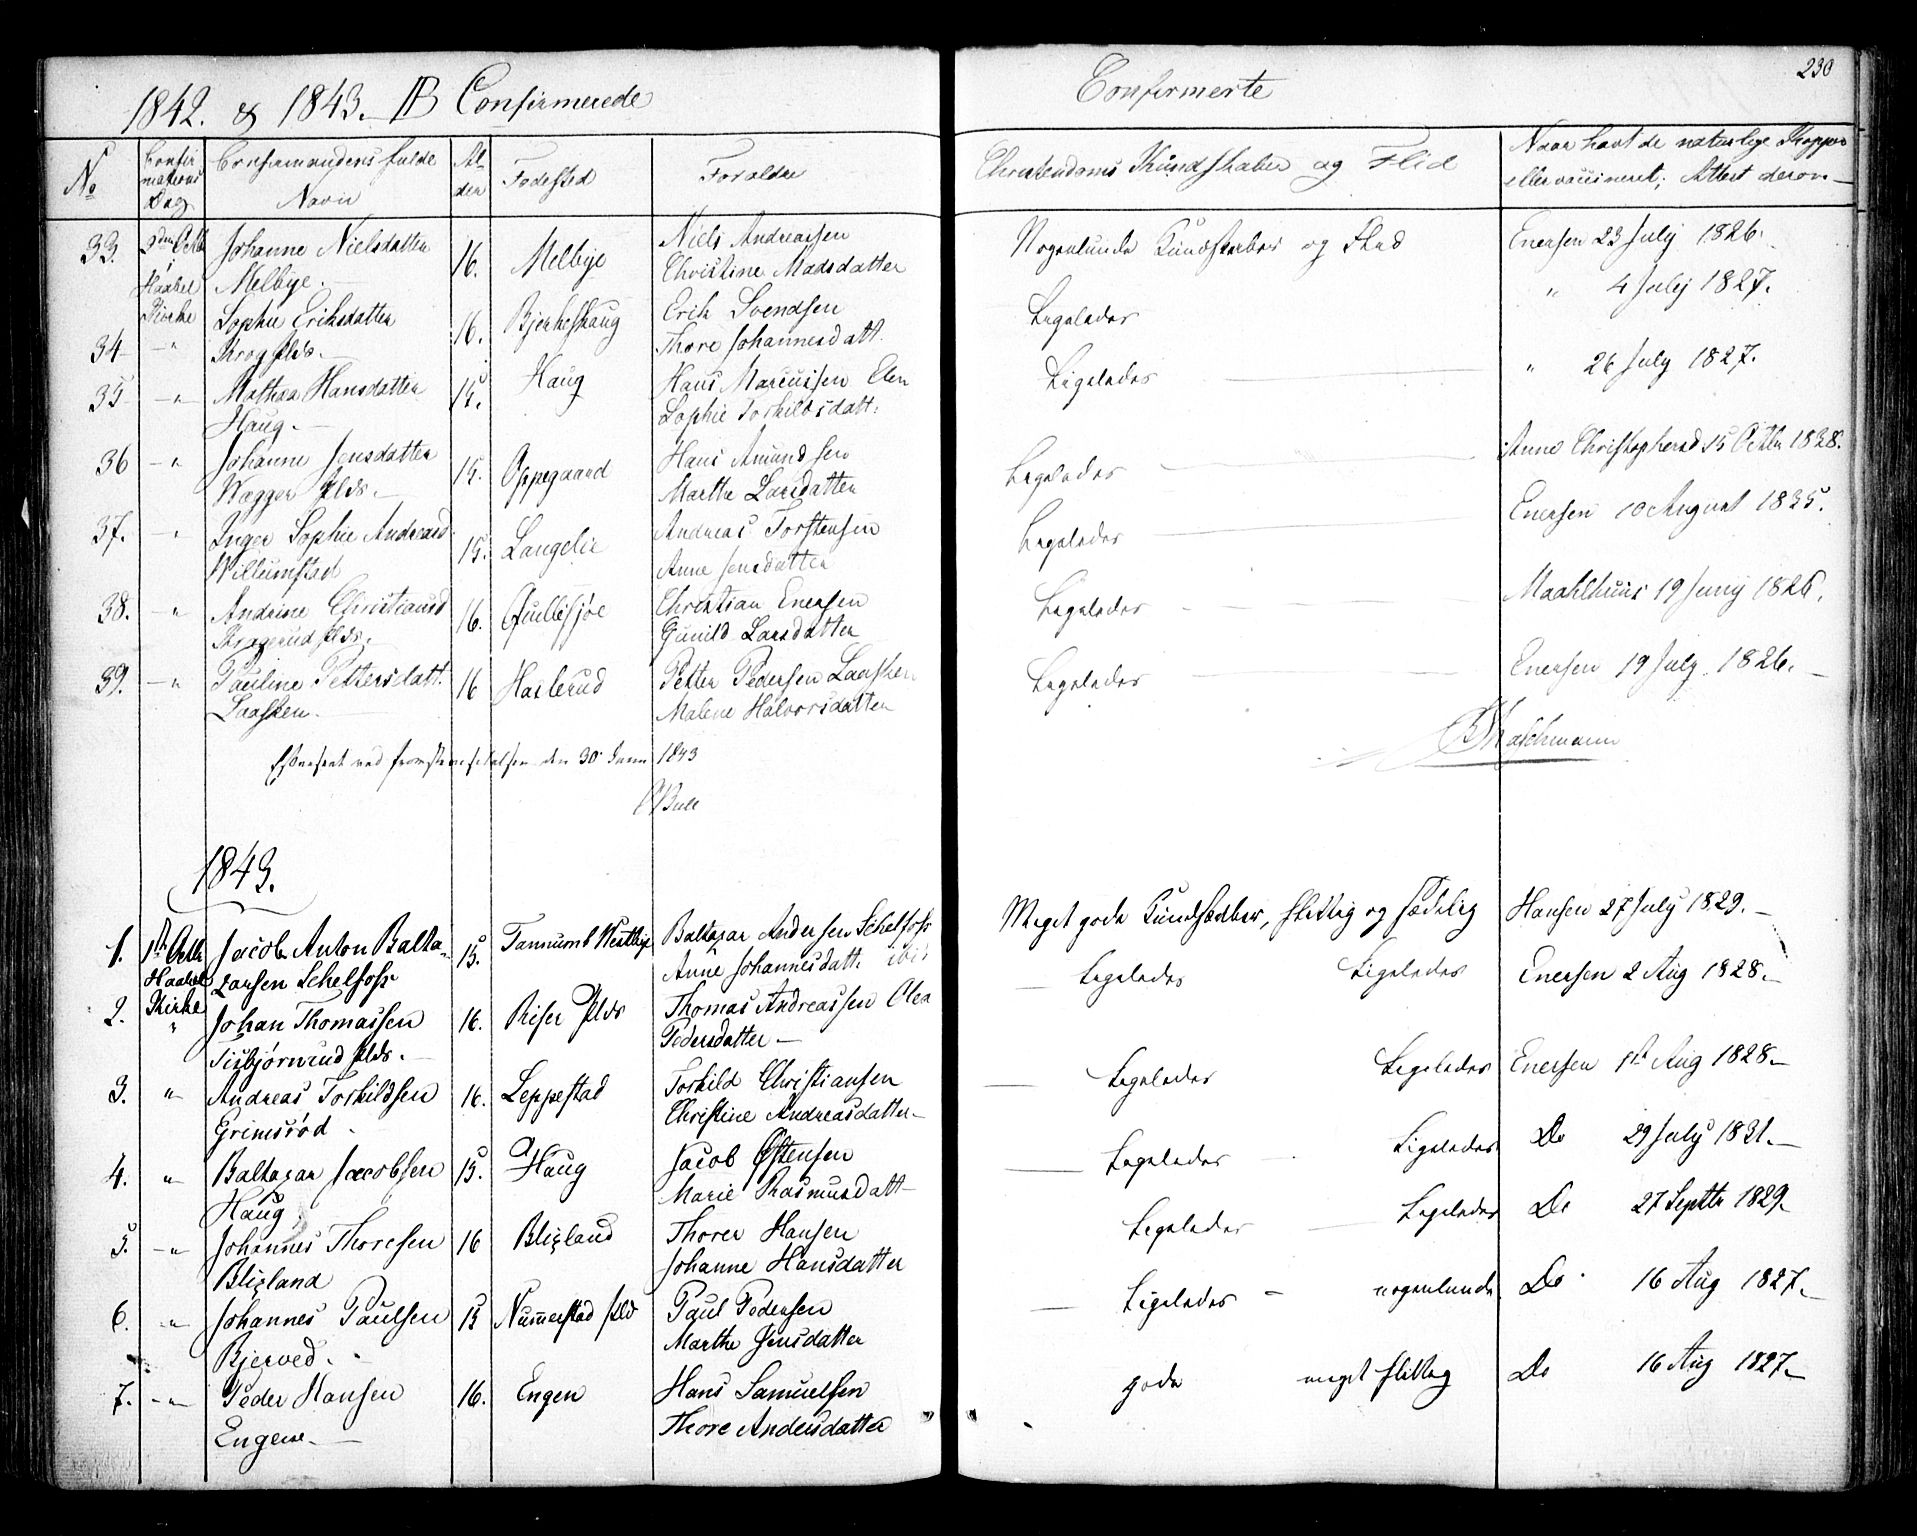 1842. & 1843. B Confirmerede
No
Confir
mations
Dag
Confirmandens fulde
Navn
Al-
der
Fødested
Forældre
33.
2den Octb
i
Haabel
Kirke
Johanne Nielsdatter
Melbye.
16.
Melbye
Niels Andreassen
Christine Madsdatter
34
"
Sophie Eriksdatter
Krog plds.
16.
Bjerkeshaug
Erik Svendsen
Thore Johannesdatt.
35
"
Mathea Hansdatter
Haug.
15.
Haug
Hans Marcussen Elen
Sophie Torkildsdatt.
36
"
Johanne Jensdatter
Wagger plds.
15.
Oppegaard
Hans Amundsen
Marthe Larsdatter
37.
"
Inger Sophie Andreasd
Willumstad
15.
Langelie
Andreas Torstensen
Anne Jensdatter
38.
"
Andrine Christiansd
Kragerud plds.
16.
Gullesjøe
Christian Enersen
Gunild Larsdatter
39.
"
Pauline Pettersdatt.
Laasken.
16
Haslerud
Petter Pedersen Laasken
Malene Halvorsdatter
den 30 Juni 1843
Bull
1843.
1.
1ste Octb
Haabel
Kirke
Jacob Anton Balta-
zarsen Schelfoss
15.
Tannum Westbye
Baltazar Andersen Schelfoss
Anne Johannesdatt. ibid
2.
"
Johan Thomassen
Tisbjørnrud plds.
16.
Riser plds
Thomas Andreassen Olea
Pedersdatter
3.
"
Andreas Torkildsen
Grimsrød.
16.
Leppestad
Torkild Christiansen
Christine Andreasdatter
4.
"
Baltazar Jacobsen
Haug.
15.
Haug
Jacob Østensen
Marie Rasmusdatt
5.
"
Johannes Thoresen
Bligland
16
Bligland
Thorer Hansen
Johanne Hansdatter
6.
"
Johannes Paulsen
Bjerved.
15
Nummestad plds
Paul Pedersen
Marthe Jensdatter
7.
"
Peder Hansen
Engene.
16.
Engen
Hans Samuelsen
Thore Andersdatter
230
Confirmerte
Christendoms Kundskaber og Flid
Naar havt de naturlige Kopper
eller vaccineret; Attest derom
Nogenlunde Kundskaber og Flid
Enersen 23 July 1826.
Ligeledes
" 4 July 1827.
Ligeledes
" 26 July 1827.
Ligeledes
Anne Christophersd 15 Octbr 1828.
Ligeledes
Enersen 10 August 1835.
Ligeledes
Maahlhuus 19 Juny 1826.
Ligeledes
Enersen 19 July 1826.
Maschmann
Meget gode Kundskaber, flittig og sædelig
Hansen 27 July 1829.
Ligeledes Ligeledes
Enersen 2 Aug 1828.
Ligeledes Ligeledes
Enersen 1ste Aug 1828
Ligeledes Ligeledes
Do 29 July 1831.
Ligeledes Ligeledes
Do 27 Septbr 1829
Ligeledes nogenlunde
Do 16 Aug 1827.
gode meget flittig
Do 16 Aug 1827